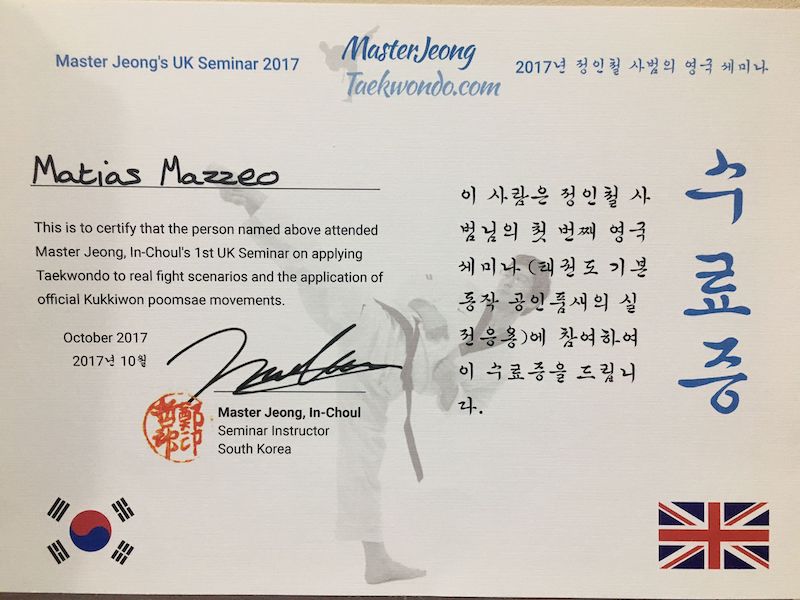 Master Jeong's UK Seminar 2017
MasterJeong
Taekwondo.com
2017년 정인철 사범의 영국 세미나
Matias Mazzeo
This is to certify that the person named above attended
Master Jeong, In-Choul's 1st UK Seminar on applying
Taekwondo to real fight scenarios and the application of
official Kukkiwon poomsae movements.
October 2017
2017년 10월
Master Jeong, In-Choul
Seminar Instructor
South Korea
이 사람은 정인철 사
범님의 첫 번째 영국
세미나 (태권도 기본
동작 공인품새의 실
전응용)에 참여하여
이 수료증을 드립니
다.
수료증